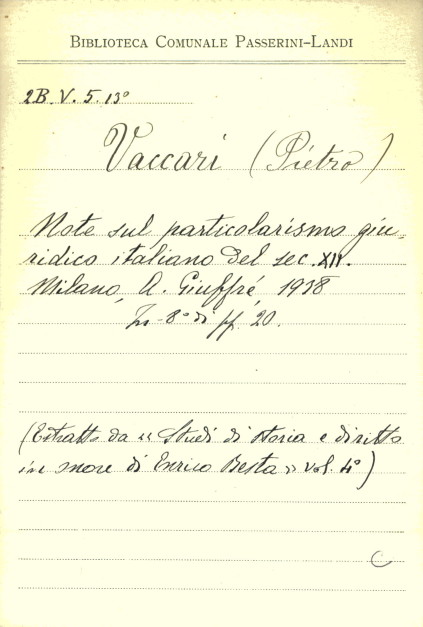 BIBLIOTECA COMUNALE PASSERINI-LANDI
2B. V. 5. 13°
Vaccari (Pietro)
Note sul particolarismo giu-
ridico italiano del sec. XII.
Milano, A. Giuffré, 1938
In-8° di pp. 20.
(Estratto da "Studi di storia e diritto
in onore di Enrico Besta" vol. 4°)
C